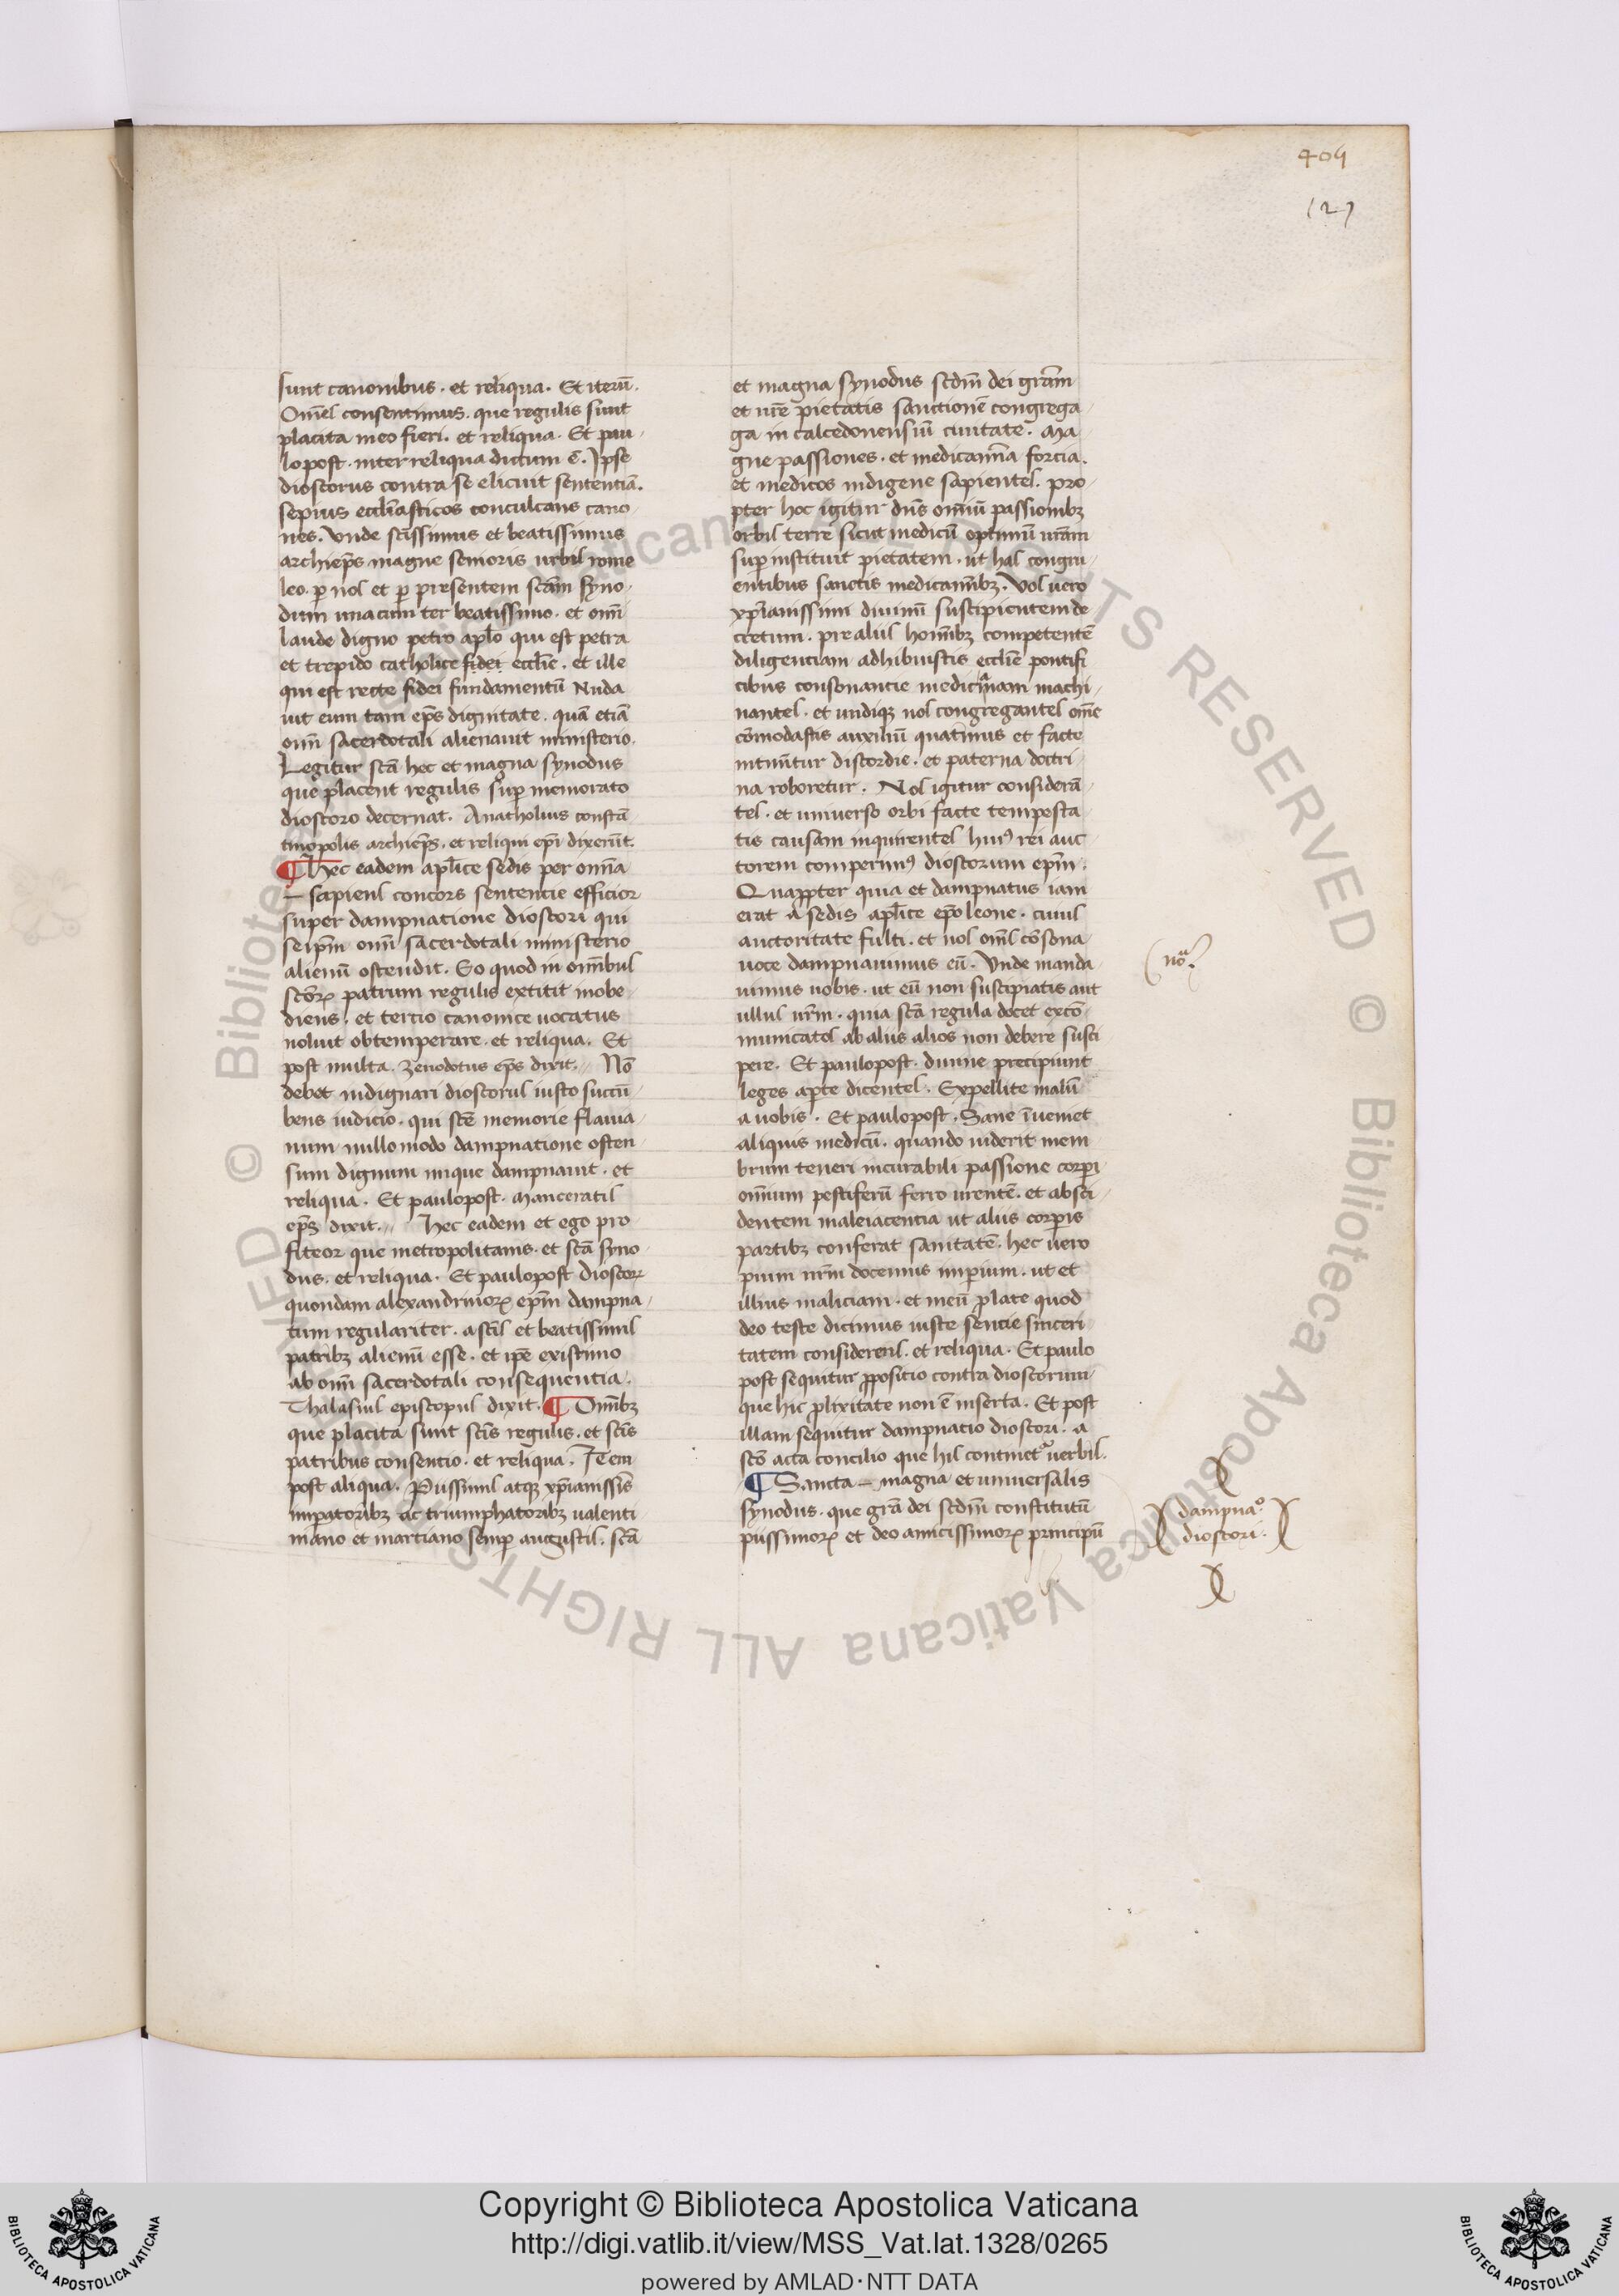 409
127
sunt canonibus. et reliqua. Et iterū.
Om̄es consentimus. que regulis sunt
placita in eo fieri. et reliqua. Et pau
lo post. inter reliqua dictum ē. Ipse
dioscorus contra se elicuit sententiā.
sepius eccl̄iasticos conculcans cano
nes. Vnde sc̄issimus et beatissimus
archiep̄s magne senioris urbis rome
leo. p̱ nos et p̱ presentem sc̄am syno
dum una cum ter beatissimo. et om̄i
laude digno petro ap̄lo qui est petra
et trepido catholice fidei eccl̄ie. et ille
qui est recte fidei fundamentū Nuda
uit eum tam ep̄s dignitate. quā etiā
om̄i sacerdotali alienauit ministerio.
Legitur sc̄a hec et magna synodus
que placent regulis sup̱ memorato
dioscoro decernat. Anatholius constā
tinopolis archiep̄s. et reliqui ep̄i dixerūt.
¶ Hec eadem ap̄lice sedis per om̄ia
sapiens concors sentencie efficior
super dampnatione dioscori qui
seip̄m om̄i sacerdotali ministerio
alienū ostendit. Eo quod in om̄ibus
sc̄oꝝ patrum regulis extitit inobe
diens. et tercio canonice uocatus
noluit obtemperare. et reliqua. Et
post multa. zenodotus ep̄s dixit. Nō
debet indignari dioscorus iusto succū
bens iudicio. qui sc̄e memorie flauia
num nullo modo dampnatione osten
sum dignum inique dampnauit. et
reliqua. Et paulo post. manceratis
ep̄s dixit. Hec eadem et ego pro
fiteor que metropolitanis. et sc̄a syno
dus. et reliqua. Et paulo post dioscorꝝ
quondam alexandrinoꝝ ep̄m dampna
tum regulariter. a sc̄is et beatissimis
patribꝫ alienū esse. et ip̄e existimo
ab om̄i sacerdotali consequentia.
Thalasius episcopus dixit. ¶ Om̄ibꝫ
que placita sunt sc̄is regulis. et sc̄is
patribus consentio. et reliqua. Item
post aliqua. Piissimis atqꝫ xp̄ianissīs
imp̱atoribꝫ ac triumphatoribꝫ ualenti
niano et martiano semp̱ augustis. sc̄a
et magna synodus sc̄dm̄ dei gr̄am
et ur̄e pietatis sanctionē congrega
ga in calcedonensiū ciuitate. Ma
gne passiones. et medicam̄ia forcia.
et medicos indigene sapientes. pro
pter hoc igitur dn̄s om̄iū passionibꝫ
orbis terre sicut medicū optimū ur̄am
sup̱instituit pietatem. ut has congru
entibus sanctis medicam̄ibꝫ. Vos uero
xp̄ianissimi diuinū suscipientem de
cretum. pre aliis hom̄ibꝫ competentē
diligenciam adhibuistis eccl̄ie pontifi
cibus consonancie medicinam machi
nantes. et undiqꝫ nos congregantes om̄e
cōmodastis auxiliū quatinus et facte
intim̄tur discordie. et paterna doctri
na roboretur. Nos igitur considerā
tes. et uniuerso orbi facte tempesta
tis causam inquirentes huiꝰ rei auc
torem comperimꝰ dioscorum ep̄m.
Quapp̱ter quia et dampnatus iam
erat a sedis ap̄lice ep̄o leone. cuius
auctoritate fulti. et nos om̄s cōsona
uoce dampnauimus eū. Vnde manda
uimus uobis. ut eū non suscipiatis aut
ullus ur̄m. quia sc̄a regula docet excō
municatos ab aliis alios non debere susci
pere. Et paulo post. diuine precipiunt
leges ap̱te dicentes. Expellite malū
a uobis. Et paulo post. Sane īueniet
aliquis medicū. quando uiderit mem
brum teneri incurabili passione corp̱i
om̄ium pestiferū ferro urentē. et absci
dentem male iacentia ut aliis corp̱is
partibꝫ conferat sanitatē. hec uero
pium ur̄m docemus imp̱ium. ut et
illius maliciam. et meū plate quod
deo teste dicimus iuste sentēcie sinceri
tatem considerens. et reliqua. Et paulo
post sequitur p̱positio contra dioscorum
que hic plixitate non ē inserta. Et post
illam sequitur dampnacio dioscori. a
sc̄o acta concilio que his continetur uerbis.
¶ Sancta magna et uniuersalis
synodus. que gr̄a dei sc̄dm̄ constitutū
piissimoꝝ et deo amicissimoꝝ principū
noᵃ
dampnaᵒ.
dioscori.
Copyright © Biblioteca Apostolica Vaticana
http://digi.vatlib.it/view/MSS_Vat.lat.1328/0265
powered by AMLAD·NTT DATA
BIBLIOTECA APOSTOLICA VATICANA
BIBLIOTECA APOSTOLICA VATICANA
© Biblioteca Apostolica Vaticana ALL RIGHTS RESERVED © Biblioteca Apostolica Vaticana ALL RIGHTS RESERVED